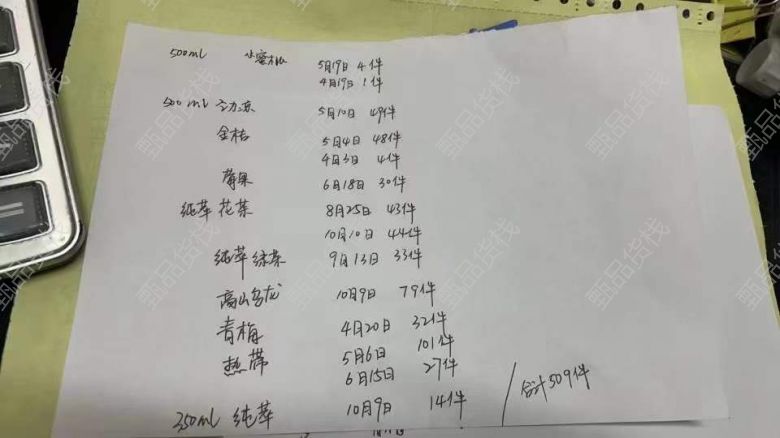 500ml 小蜜 5月19日 4件
4月19日 1件
500ml 5月10日 49件
金桔 5月4日 48件
4月3日 4件
莓果 6月18日 30件
纯萃 花茶 8月25日 43件
10月10日 44件
纯萃 绿茶 9月13日 33件
高山乌龙 10月9日 79件
青梅 4月20日 32件
热带 5月6日 101件
6月15日 27件
350ml 纯萃 10月9日 14件
合计509件
甄品货栈